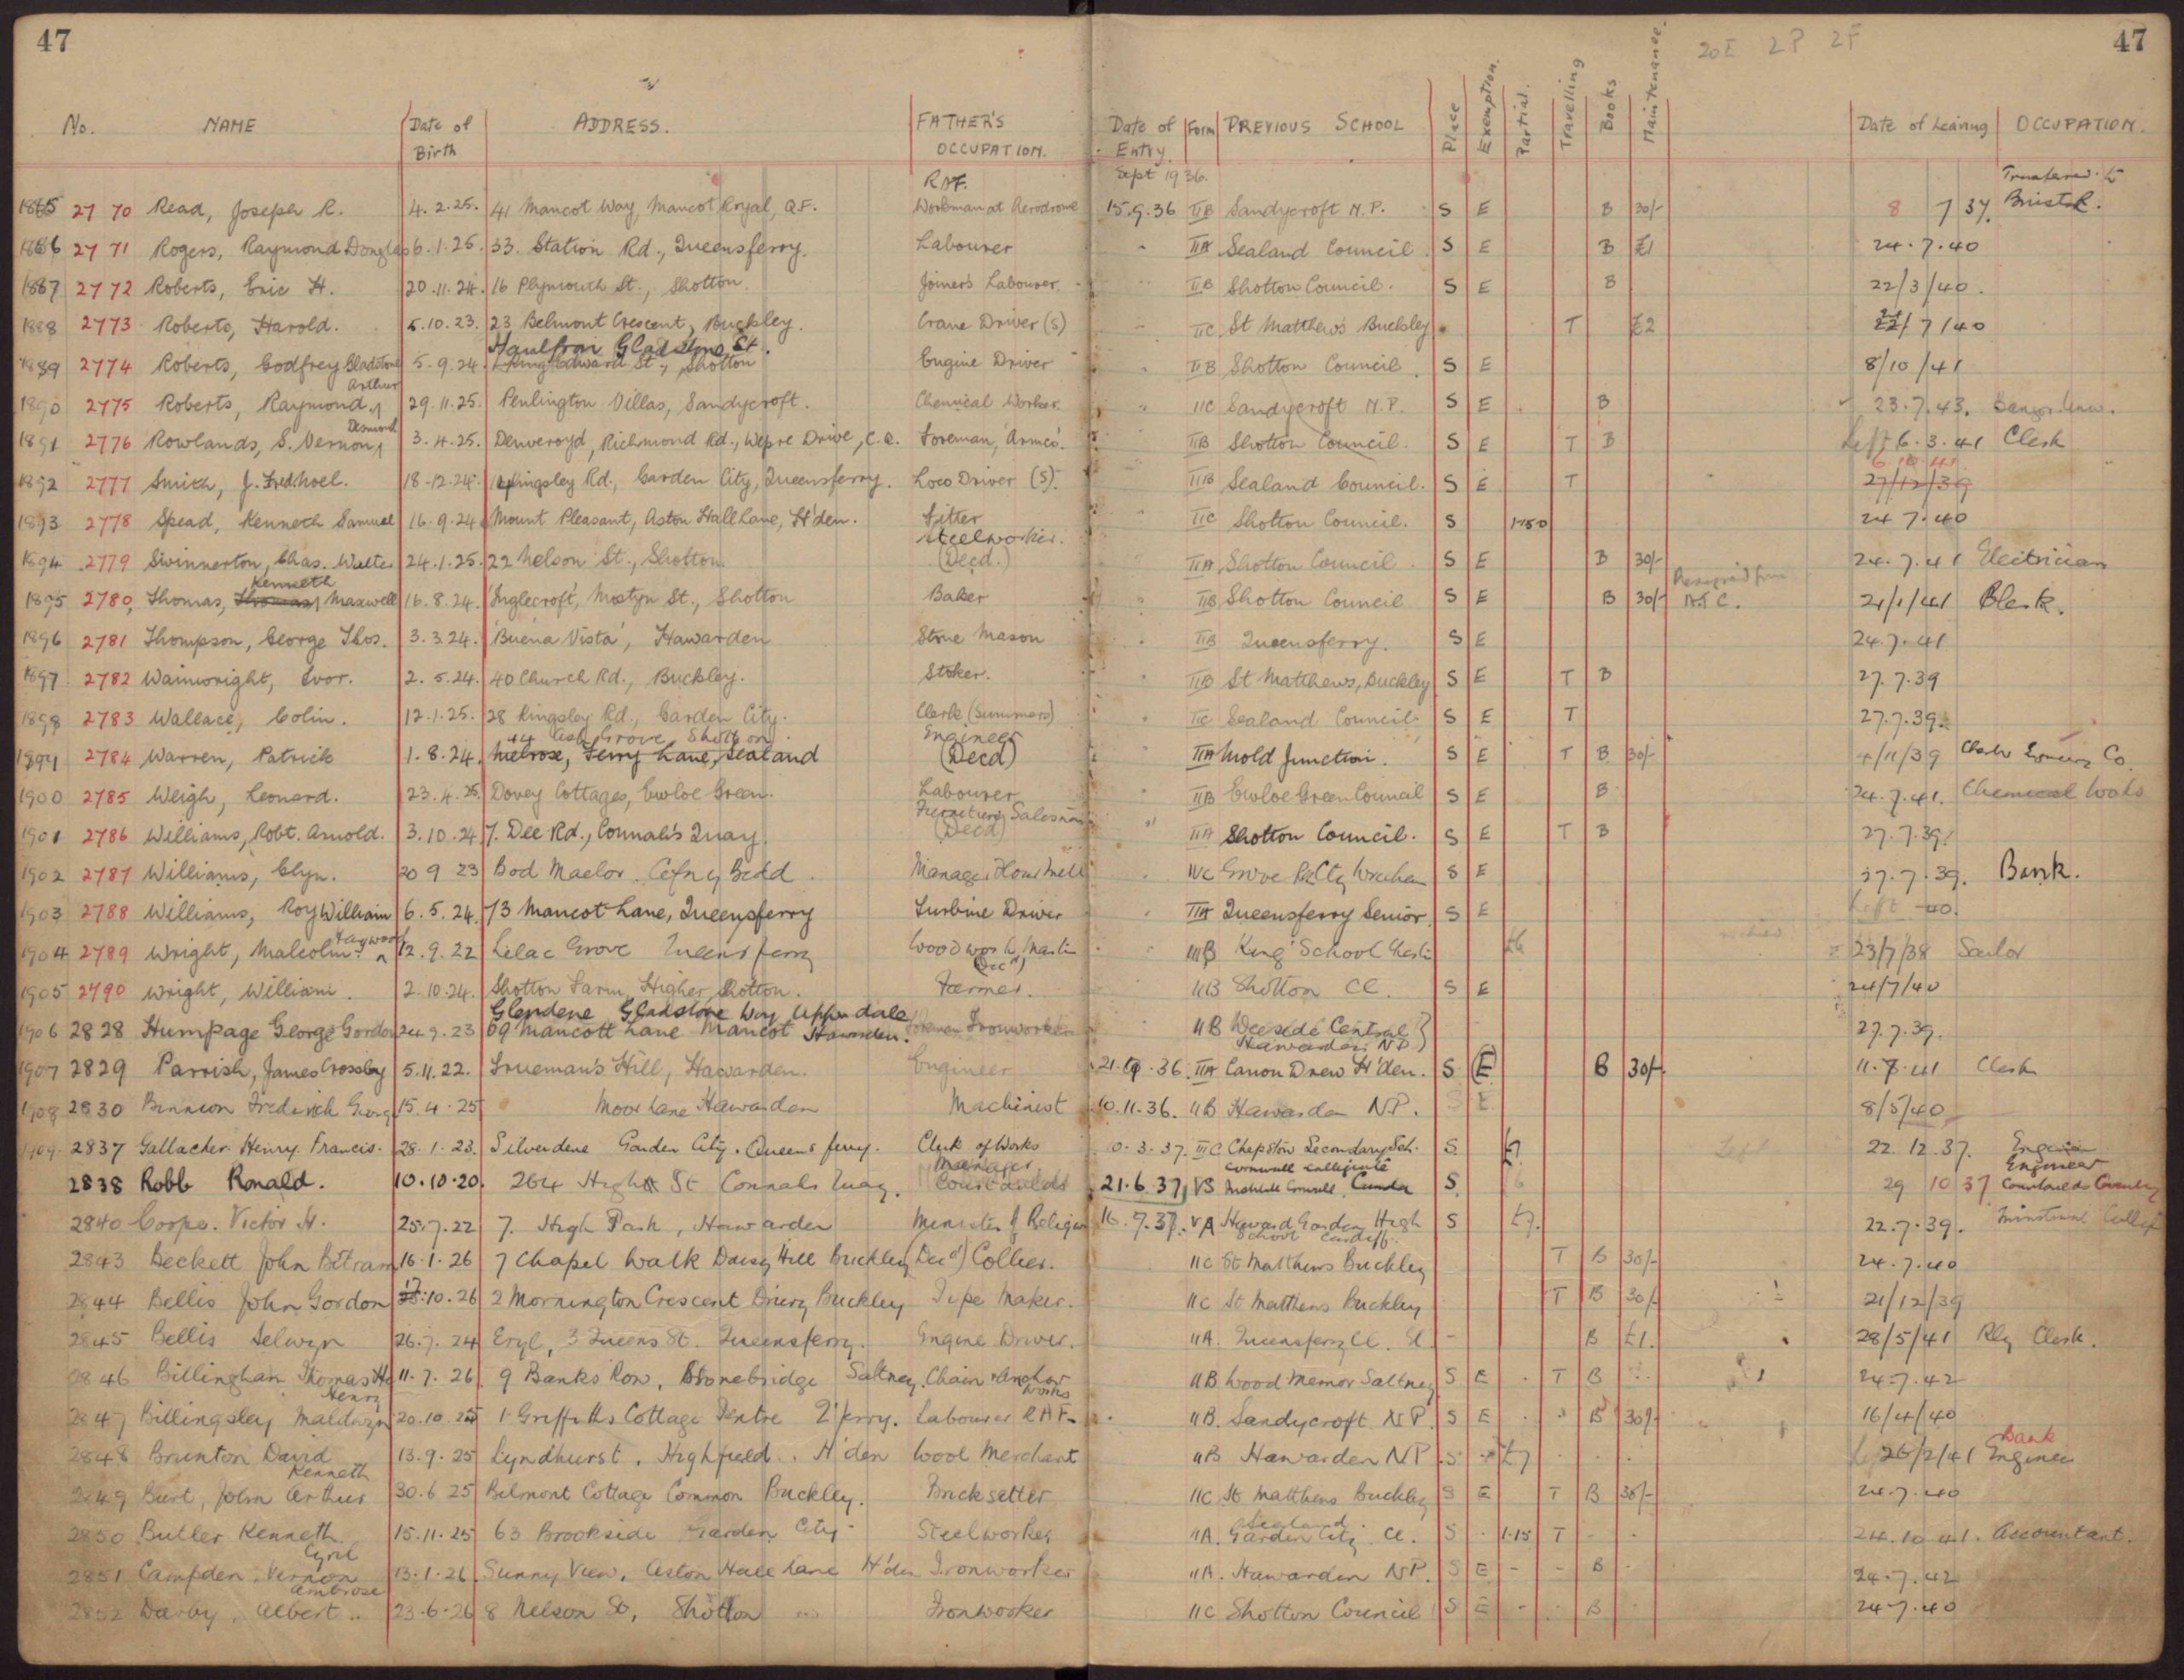 47
20E 2P 2F
47
No. NAME Date of Birth ADDRESS. FATHER'S OCCUPATION. Date of Entry. Form PREVIOUS SCHOOL Place Exemption. Partial. Travelling Books Maintenance. Date of Leaving OCCUPATION.
Sept 1936.
1885 2770 Read, Joseph R. 4.2.25. 41 Mancot Way, Mancot Royal, Q.F. R.A.F. Workman at Aerodrome 15.9.36 IIB Sandycroft N.P. S E B 30/- 8 7 37. Transferred to Bristol.
1886 2771 Rogers, Raymond Douglas 6.1.25. 33. Station Rd., Queensferry. Labourer " IIA Sealand Council. S E B £1 24.7.40
1887 2772 Roberts, Eric H. 20.11.24. 16 Plymouth St., Shotton. Joiner's Labourer. " IIB Shotton Council. S E B 22/3/40.
1888 2773 Roberts, Harold. 5.10.23. 23 Belmont Crescent, Buckley. Crane Driver (S) " IIC St Matthews Buckley T £2 /7/40
1889 2774 Roberts, Godfrey Gladstone 5.9.24. Gladstone St. King Edward St., Shotton Engine Driver IIB Shotton Council. S E 8/10/41
1890 2775 Roberts, Raymond Arthur 29.11.25. Penlington Villas, Sandycroft. Chemical Worker. " IIC Sandycroft N.P. S E B 23.7.43. Bangor Univ.
1891 2776 Rowlands, S. Vernon Desmond 3.4.25. Denveroyd, Richmond Rd., Wepre Drive, C.Q. Foreman, 'Armco'. IIB Shotton Council. S E T B Left 6.3.41 Clerk
1892 2777 Smith, J. Fred. Noel. 18.12.24. Kingsley Rd., Garden City, Queensferry. Loco Driver (S). IIB Sealand Council. S E T 6.10.41. 27/12/39
1893 2778 Spead, Kenneth Samuel 16.9.24. Mount Pleasant, Aston Hall Lane, H'den. Fitter " IIC Shotton Council. S 24.7.40
1894 2779 Swinnerton, Chas. Walter 24.1.25. 22 Nelson St., Shotton. Steelworker. (Decd.) " IIA Shotton Council. S E B 30/- 24.7.41 Electrician
1895 2780 Thomas, Thomas Kenneth Maxwell 16.8.24. 'Inglecroft', Mostyn St., Shotton Baker " IIB Shotton Council S E B 30/- 21/1/41 Clerk.
1896 2781 Thompson, George Thos. 3.3.24. 'Buena Vista', Hawarden Stone Mason " IIB Queensferry. S E 24.7.41
1897 2782 Wainwright, Ivor. 2.5.24. 40 Church Rd., Buckley. Stoker. " IIB St Matthews, Buckley S E T B 27.7.39
1898 2783 Wallace, Colin. 12.1.25. 28 Kingsley Rd., Garden City. Clerk (Summers) " IIC Sealand Council. S E T 27.7.39.
1899 2784 Warren, Patrick 1.8.24. 44 Ash Grove Shotton. Melrose, Ferry Lane, Sealand Engineer (Decd) IIA Mold Junction. S E T B 30/- 4/11/39 Co.
1900 2785 Weigh, Leonard. 23.4.25. Dovey Cottages, Ewloe Green. Labourer " IIB Ewloe Green Council S E B 24.7.41. Chemical Works
1901 2786 Williams, Robt. Arnold. 3.10.24 7. Dee Rd., Connah's Quay. Furniture Salesman (Decd) " IIA Shotton Council. S E T B 27.7.39.
1902 2787 Williams, Glyn. 20 9 23 Bod Maelor. Cefn y Bedd. Manager Flour Mill IIC Grove Pk Cty Wrexham S E 27.7.39. Bank.
1903 2788 Williams, Roy William 6.5.24. 73 Mancot Lane, Queensferry Turbine Driver IIA Queensferry Senior. S E Left 40.
1904 2789 Wright, Malcolm Haywood 12.9.22 Lilac Grove Queensferry Woodwork Master (Decd) " IIIB King School Chester 23/7/38 Sailor
1905 2790 Wright, William. 2.10.24. Shotton Farm, Higher Shotton. Farmer. IIB Shotton Cl. S E 24/7/40
1906 2828 Humpage George Gordon 24.9.23 Glendene Gladstone Way 69 Mancott Lane Mancot Hawarden. Foreman Ironworker IIB Deeside Central Hawarden NP) 27.7.39.
1907 2829 Parrish, James Crossley 5.11.22. Trueman's Hill, Hawarden. Engineer 21.9.36. IIA Canon Drew H'den. S (E) B 30/- 11.7.41 Clerk
1908 2830 Bennion Frederick George 15.4.25 Moor Lane Hawarden Machinist 10.11.36. IIB Hawarden N.P. S E 8/5/40
1909 2837 Gallacher. Henry Francis. 28.1.23. Silverdene Garden City. Queensferry. Clerk of Works 10.3.37. IIIC Chepstow Secondary Sch. S. Left 22.12.37.
2838 Robb Ronald. 10.10.20. 264 High St Connahs Quay. Manager Courtaulds 21.6.37, VB Cornwall Collegiate Cornwall, Canada S. 29 10 37 Engineer Courtaulds Coventry
2840 Cooper. Victor H. 25.7.22 7. High Park, Hawarden Minister of Religion 16.9.37. VA Howard Gardens High School Cardiff. S 22.7.39. Ministerial College
2843 Beckett John Bertram 16.1.26 7 Chapel Walk Daisy Hill Buckley (Decd) Collier. IIC St Matthews Buckley T B 30/- 24.7.40
2844 Bellis John Gordon .10.26 2 Mornington Crescent Drury Buckley Pipe Maker. IIC St Matthews Buckley T B 30/- 21/12/39
2845 Bellis Selwyn 26.7.24 Eryl, 3 Queens St. Queensferry. Engine Driver. IIA. Queensferry Cl. - B £1. 28/5/41 Rly Clerk.
2846 Billingham Thomas Henry 11.7.26 9 Banks Row, Stonebridge Saltney. Chain & Anchor Works IIB Wood Memor Saltney S E T B 24.7.42
2847 Billingsley Maldwyn 20.10.25 1 Griffiths Cottage Pentre Q'ferry. Labourer R.A.F. IIB. Sandycroft NP. S E B 30/- 16/4/40
2848 Brunton David Kenneth 13.9.25 Lyndhurst, Highfield. H'den Wool Merchant IIB Hawarden NP. S 26/2/41 Bank Engineer
2849 Burt, John Arthur 30.6.25 Belmont Cottage Common Buckley. Bricksetter IIC St Matthews Buckley S E T B 30/- 24.7.40
2850 Butler Kenneth Cyril 15.11.25 63 Brookside Garden City. Steelworker IIA. Sealand Garden City Cl. S 1.15 T - 24.10.41. Accountant.
2851 Campden. Vernon Ambrose 13.1.26. Sunny View, Aston Hall Lane H'den Ironworker IIA. Hawarden NP. S E - - B - 24.7.42
2852 Darby, Albert .. 23.6.26 8 Nelson St, Shotton Ironworker IIC Shotton Council S E - B 24.7.40